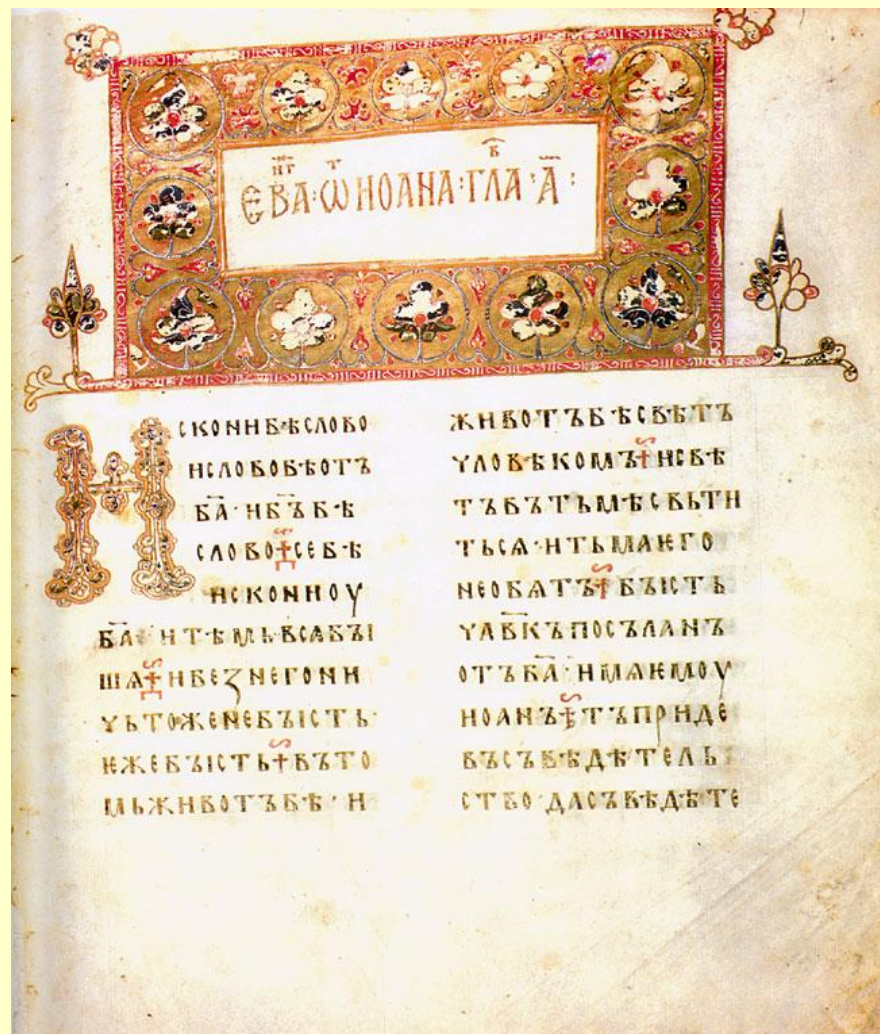 ЕВА҃·Ѡ ИОАНА·ГЛА·А҃:
ИСКОНИБѢСЛОВО
ИСЛОВОБѢОТЪ
БА҃·ИБЪ҃БѢ
СЛОВО☦СЕБѢ
ИСКОНИОУ
БА҃·ИТѢМЬВСꙖБЪІ
ШѦ☦ИБЕЗНЕГОНИ
ЧЬТОЖЕНЕБЪІСТЬ·
ѤЖЕБЪІСТЬ☦ВЪТО
МЬЖИВОТЪБѢ·И
ЖИВОТЪБѢСВѢТЪ
ЧЛОВѢКОМЪ☦ИСВѢ
ТЪВЪТЬМѢСВЬТИ
ТЬСѦ·ИТЬМАѤГО
НЕОБѦТЪ☦БЪІСТЬ
ЧЛ҃ВКЪПОСЪЛАНЪ
ОТЪБА҃·ИМѦѤМОУ
ИОАНЪ☦ТЪПРИДЕ
ВЪСЪВѢДѢТЕЛЬ
СТВО·ДАСЪВѢДѢТЕ